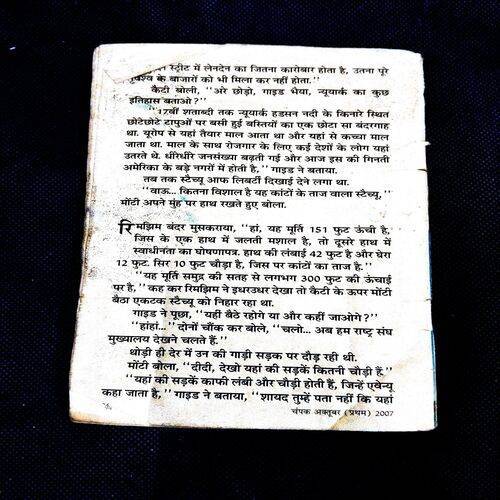 स्ट्रीट में लेनदेन का जितना कारोबार होता है, उतना पूरे
विश्व के बाजारों को भी मिला कर नहीं होता."
कैटी बोली, "अरे छोड़ो, गाइड भैया, न्यूयार्क का कुछ
इतिहास बताओ?"
"17वीं शताब्दी तक न्यूयार्क हडसन नदी के किनारे स्थित
छोटेछोटे टापुओं पर बसी हुई बस्तियों का एक छोटा सा बंदरगाह
था. यूरोप से यहां तैयार माल आता था और यहां से कच्चा माल
जाता था. माल के साथ रोजगार के लिए कई देशों के लोग यहां
उतरते थे. धीरेधीरे जनसंख्या बढ़ती गई और आज इस की गिनती
अमेरिका के बड़े नगरों में होती है," गाइड ने बताया.
तब तक स्टैच्यू आफ लिबर्टी दिखाई देने लगा था.
"वाऊ... कितना विशाल है यह कांटों के ताज वाला स्टैच्यू,"
मोंटी अपने मुंह पर हाथ रखते हुए बोला.
रिमझिम बंदर मुसकराया, "हां, यह मूर्ति 151 फुट ऊंची है,
जिस के एक हाथ में जलती मशाल है, तो दूसरे हाथ में
स्वाधीनता का घोषणापत्र. हाथ की लंबाई 42 फुट है और घेरा
12 फुट. सिर 10 फुट चौड़ा है, जिस पर कांटों का ताज है."
"यह मूर्ति समुद्र की सतह से लगभग 300 फुट की ऊंचाई
पर है," कह कर रिमझिम ने इधरउधर देखा तो कैटी के ऊपर मोंटी
बैठा एकटक स्टैच्यू को निहार रहा था.
गाइड ने पूछा, "यहीं बैठे रहोगे या और कहीं जाओगे?"
"हांहां..." दोनों चौंक कर बोले, "चलो... अब हम राष्ट्र संघ
मुख्यालय देखने चलते हैं."
थोड़ी ही देर में उन की गाड़ी सड़क पर दौड़ रही थी.
मोंटी बोला, "दीदी, देखो यहां की सड़कें कितनी चौड़ी हैं."
"यहां की सड़कें काफी लंबी और चौड़ी होती हैं, जिन्हें एवेन्यू
कहा जाता है," गाइड ने बताया, "शायद तुम्हें पता नहीं कि यहां
चंपक अक्तूबर (प्रथम) 2007